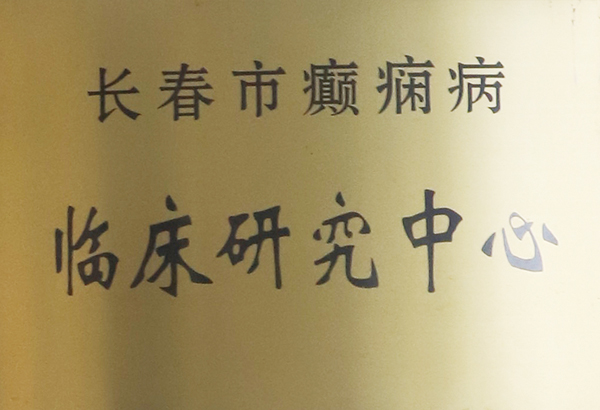 长春市癫痫病
临床研究中心